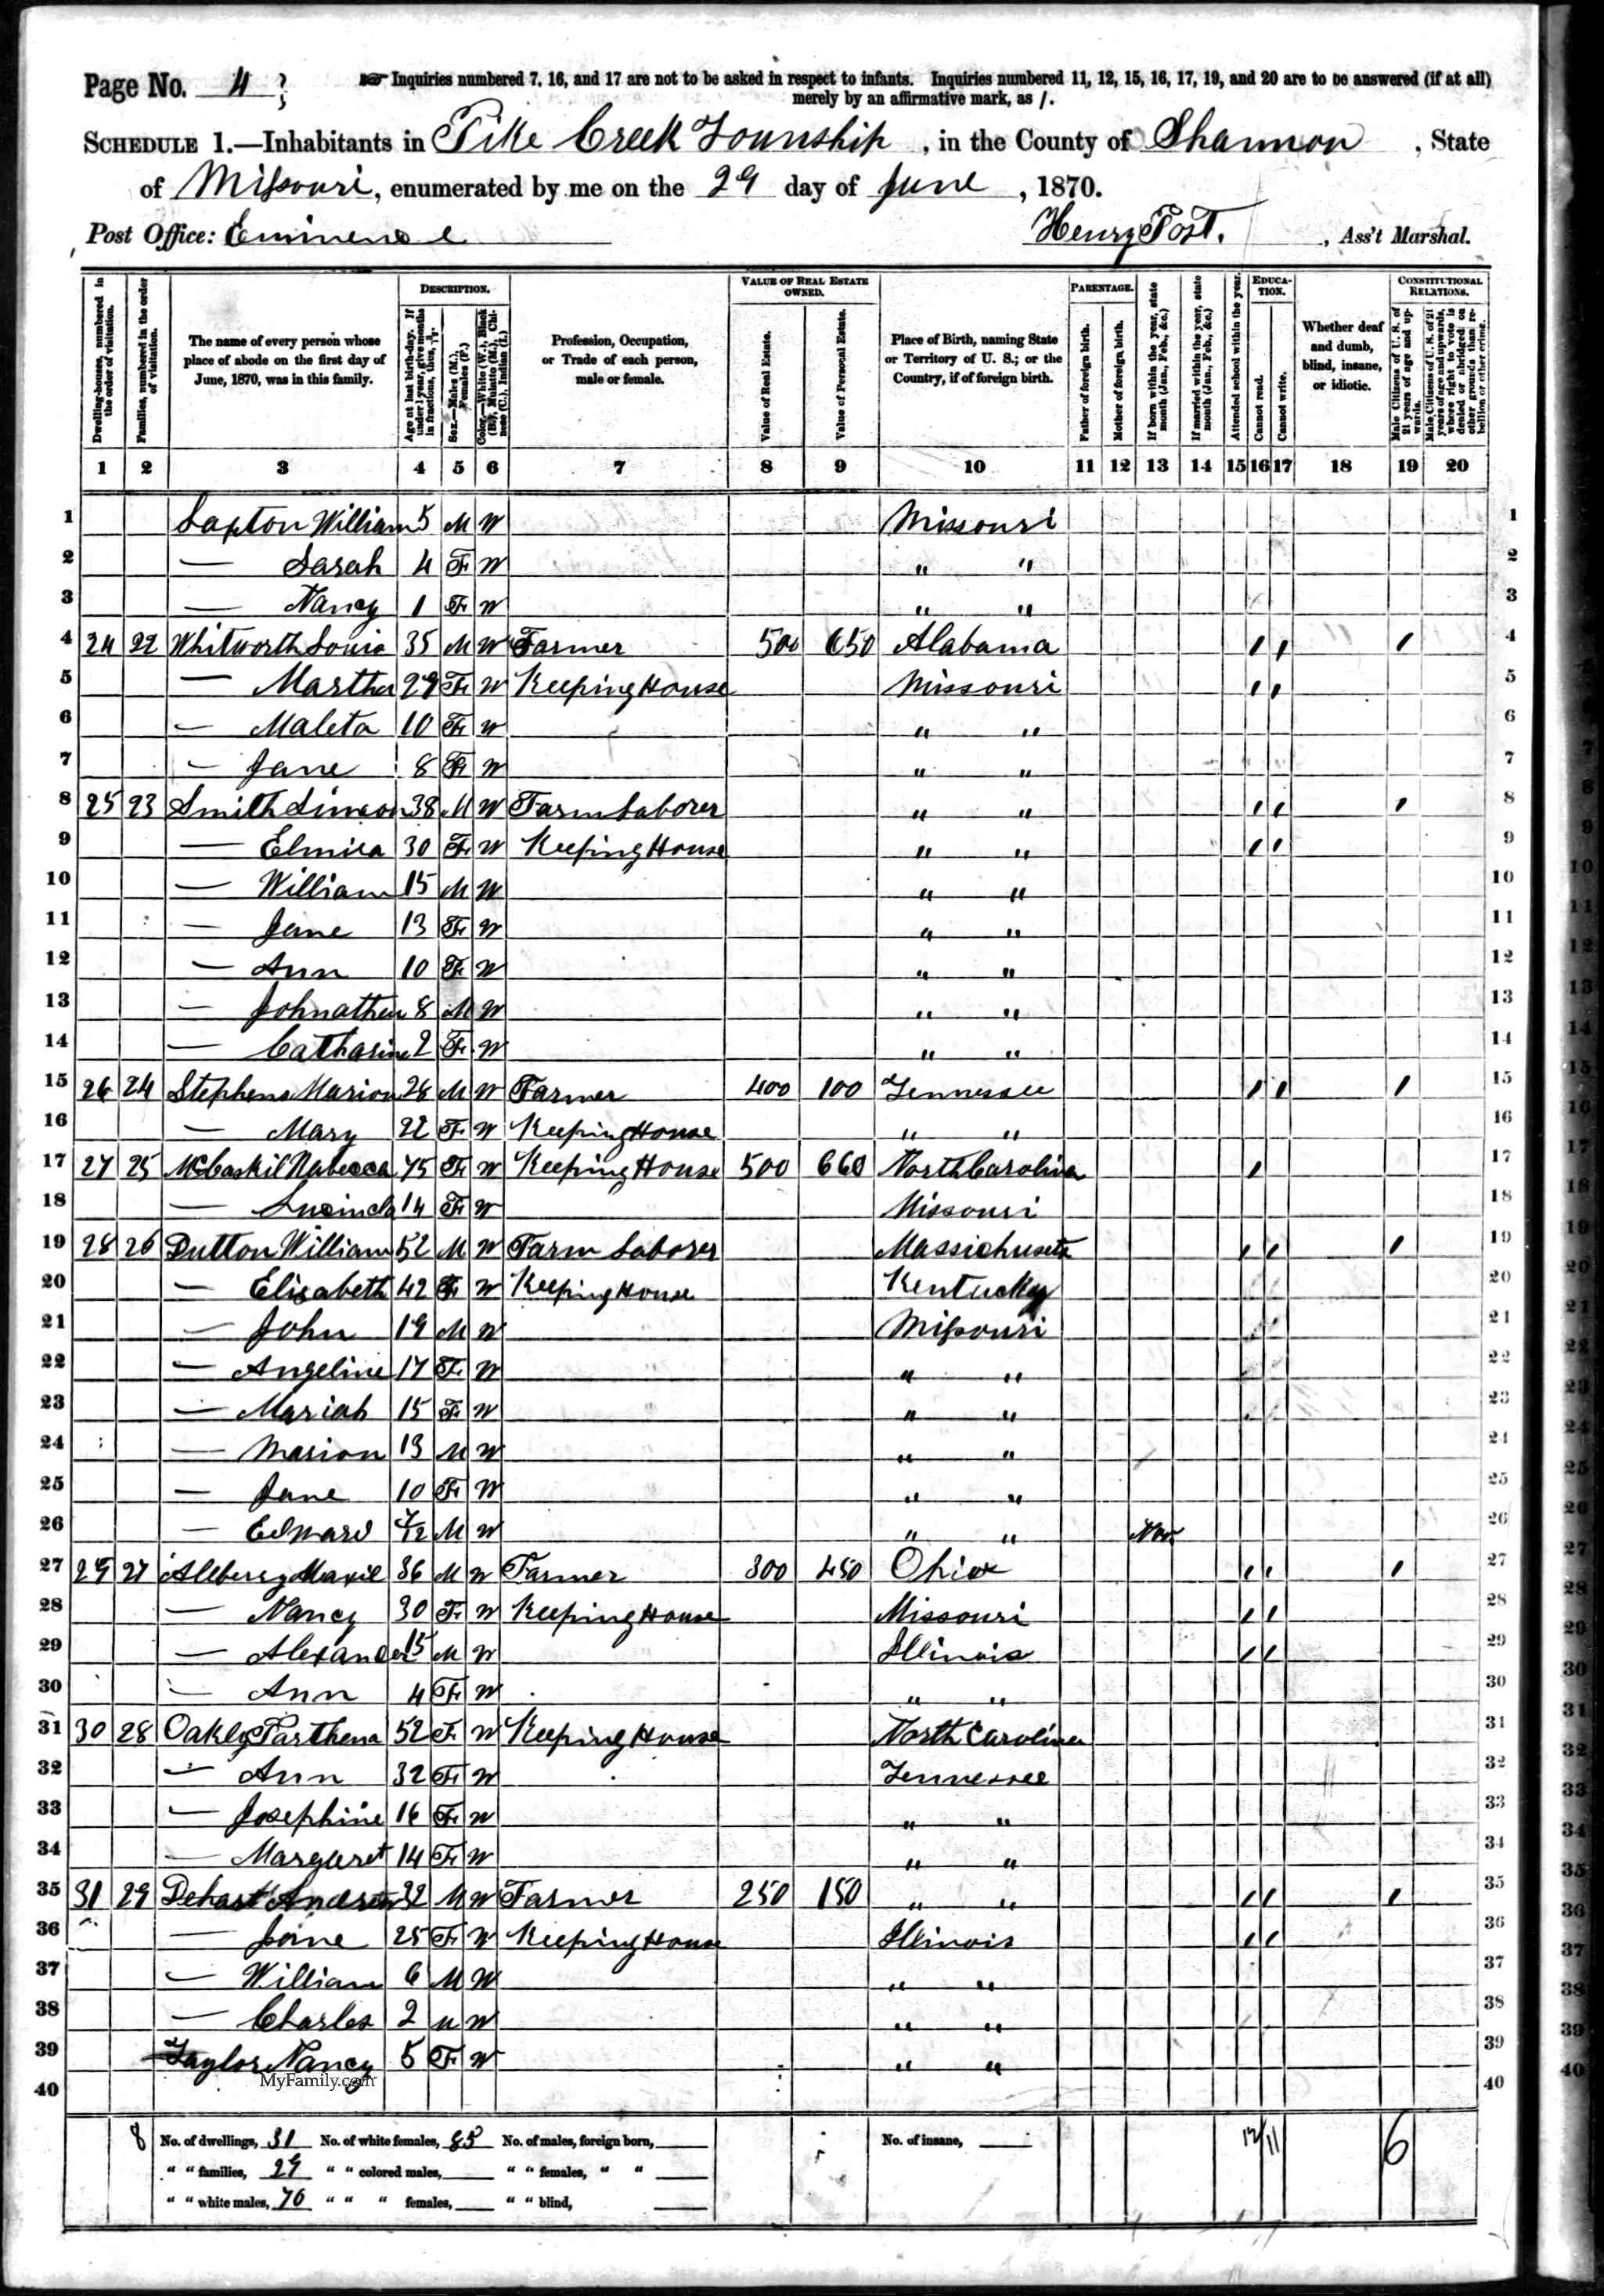 Page No. 4
Inquiries numbered 7, 16, and 17 are not to be asked in respect to infants. Inquiries numbered 11, 12, 15, 16, 17, 19, and 20 are to be answered (if at all)
merely by an affirmative mark, as /.
SCHEDULE 1.—Inhabitants in Pike Creek Township, in the County of Shannon, State
of Missouri, enumerated by me on the 29 day of June, 1870.
Post Office: Eminence Henry Post, Ass't Marshal.
DESCRIPTION. VALUE OF REAL ESTATE OWNED. PARENTAGE. EDUCATION. CONSTITUTIONAL RELATIONS.
Dwelling-houses, numbered in the order of visitation.
Families, numbered in the order of visitation.
The name of every person whose place of abode on the first day of June, 1870, was in this family.
Age at last birth-day. If under 1 year, give months in fractions, thus, 3/12.
Sex.—Males (M.), Females (F.)
Color.—White (W.), Black (B.), Mulatto (M.), Chinese (C.), Indian (I.)
Profession, Occupation, or Trade of each person, male or female.
Value of Real Estate.
Value of Personal Estate.
Place of Birth, naming State or Territory of U. S.; or the Country, if of foreign birth.
Father of foreign birth.
Mother of foreign birth.
If born within the year, state month (Jan., Feb., &c.)
If married within the year, state month (Jan., Feb., &c.)
Attended school within the year.
Cannot read.
Cannot write.
Whether deaf and dumb, blind, insane, or idiotic.
Male Citizens of U. S. of 21 years of age and upwards.
Male Citizens of U. S. of 21 years of age and upwards, whose right to vote is denied or abridged on other grounds than rebellion or other crime.
1 2 3 4 5 6 7 8 9 10 11 12 13 14 15 16 17 18 19 20
1 Saxton William 5 M W Missouri 1
2 — Sarah 4 F W " " 2
3 — Nancy 1 F W " " 3
4 24 22 Whitworth Louis 35 M W Farmer 500 650 Alabama / / / 4
5 — Martha 29 F W Keeping House Missouri / / 5
6 — Maleta 10 F W " " 6
7 — Jane 8 F W " " 7
8 25 23 Smith Simeon 38 M W Farm Laborer " " / / / 8
9 — Elmira 30 F W Keeping House " " / / 9
10 — William 15 M W " " 10
11 — Jane 13 F W " " 11
12 — Ann 10 F W " " 12
13 — Johnathan 8 M W " " 13
14 — Catharine 2 F W " " 14
15 26 24 Stephens Marion 26 M W Farmer 400 100 Tennessee / / / 15
16 — Mary 22 F W Keeping House " " 16
17 27 25 McCaskil Rabecca 75 F W Keeping House 500 660 North Carolina / 17
18 — Lucinda 14 F W Missouri 18
19 28 26 Dutton William 52 M W Farm Laborer Massichusets / / / 19
20 — Elisabeth 42 F W Keeping House Kentucky 20
21 — John 19 M W Missouri 21
22 — Angeline 17 F W " " 22
23 — Mariah 15 F W " " 23
24 — Marion 13 M W " " 24
25 — Jane 10 F W " " 25
26 — Edward 7/12 M W " " Nov 26
27 29 27 36 M W Farmer 300 450 Ohio / / / 27
28 — Nancy 30 F W Keeping House Missouri / / 28
29 — Alexander 15 M W Illinois / / 29
30 — Ann 4 F W " " 30
31 30 28 Oakley Parthena 52 F W Keeping House North Carolina 31
32 — Ann 32 F W Tennessee 32
33 — Josephine 16 F W " " 33
34 — Margaret 14 F W " " 34
35 31 29 Dehart Andrew 32 M W Farmer 250 150 " " / / / 35
36 — Jane 25 F W Keeping House Illinois / / 36
37 — William 6 M W " " 37
38 — Charles 2 M W " " 38
39 Taylor Nancy 5 F W " " 39
40 40
MyFamily.com
8 No. of dwellings, 31 No. of white females, 85 No. of males, foreign born, No. of insane, 12/11 6
" " families, 29 " " colored males, " " females, " "
" " white males, 70 " " " females, " " blind,